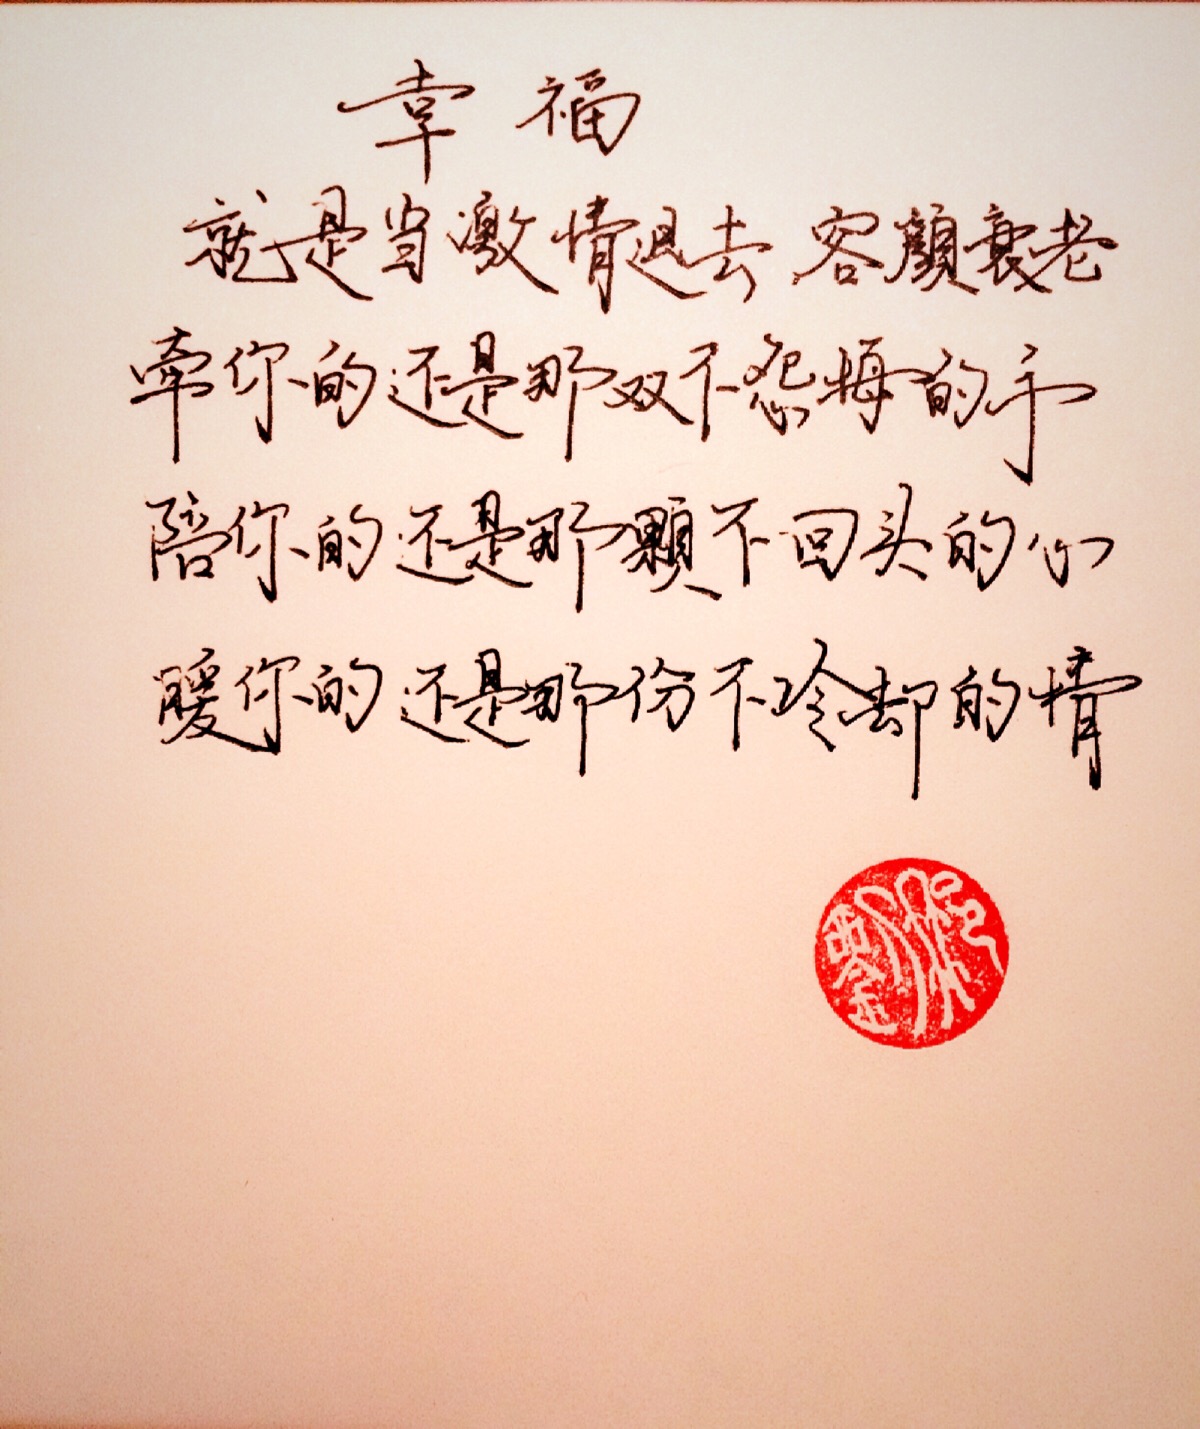 幸福
就是当激情退去 容顔衰老
牵你的还是那双不怨悔的手
陪你的还是那颗不回头的心
暖你的还是那份不冷却的情